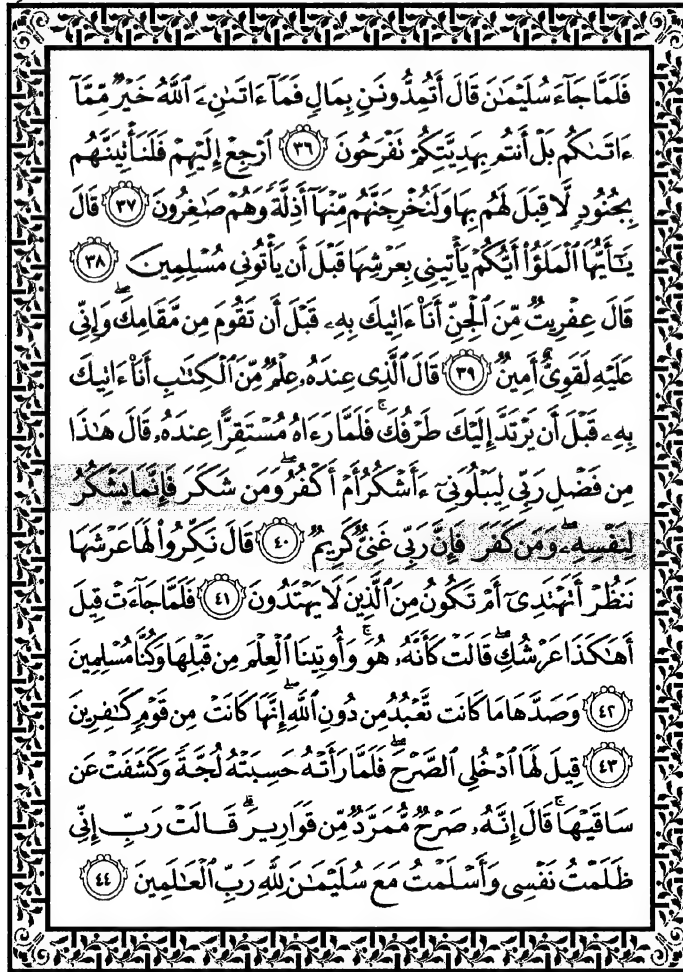 فَلَمَّا جَآءَ سُلَيْمَٰنَ قَالَ أَتُمِدُّونَنِ بِمَالٍ فَمَآ ءَاتَىٰنِۦَ ٱللَّهُ خَيْرٌ مِّمَّآ
ءَاتَىٰكُم بَلْ أَنتُم بِهَدِيَّتِكُمْ تَفْرَحُونَ ﴿٣٦﴾ ٱرْجِعْ إِلَيْهِمْ فَلَنَأْتِيَنَّهُم
بِجُنُودٍ لَّا قِبَلَ لَهُم بِهَا وَلَنُخْرِجَنَّهُم مِّنْهَآ أَذِلَّةً وَهُمْ صَٰغِرُونَ ﴿٣٧﴾ قَالَ
يَٰٓأَيُّهَا ٱلْمَلَؤُا۟ أَيُّكُمْ يَأْتِينِى بِعَرْشِهَا قَبْلَ أَن يَأْتُونِى مُسْلِمِينَ ﴿٣٨﴾
قَالَ عِفْرِيتٌ مِّنَ ٱلْجِنِّ أَنَا۠ ءَاتِيكَ بِهِۦ قَبْلَ أَن تَقُومَ مِن مَّقَامِكَ ۖ وَإِنِّى
عَلَيْهِ لَقَوِىٌّ أَمِينٌ ﴿٣٩﴾ قَالَ ٱلَّذِى عِندَهُۥ عِلْمٌ مِّنَ ٱلْكِتَٰبِ أَنَا۠ ءَاتِيكَ
بِهِۦ قَبْلَ أَن يَرْتَدَّ إِلَيْكَ طَرْفُكَ ۚ فَلَمَّا رَءَاهُ مُسْتَقِرًّا عِندَهُۥ قَالَ هَٰذَا
مِن فَضْلِ رَبِّى لِيَبْلُوَنِىٓ ءَأَشْكُرُ أَمْ أَكْفُرُ ۖ وَمَن شَكَرَ فَإِنَّمَا يَشْكُرُ
لِنَفْسِهِۦ ۖ وَمَن كَفَرَ فَإِنَّ رَبِّى غَنِىٌّ كَرِيمٌ ﴿٤٠﴾ قَالَ نَكِّرُوا۟ لَهَا عَرْشَهَا
نَنظُرْ أَتَهْتَدِىٓ أَمْ تَكُونُ مِنَ ٱلَّذِينَ لَا يَهْتَدُونَ ﴿٤١﴾ فَلَمَّا جَآءَتْ قِيلَ
أَهَٰكَذَا عَرْشُكِ ۖ قَالَتْ كَأَنَّهُۥ هُوَ ۚ وَأُوتِينَا ٱلْعِلْمَ مِن قَبْلِهَا وَكُنَّا مُسْلِمِينَ
﴿٤٢﴾ وَصَدَّهَا مَا كَانَت تَّعْبُدُ مِن دُونِ ٱللَّهِ ۖ إِنَّهَا كَانَتْ مِن قَوْمٍ كَٰفِرِينَ
﴿٤٣﴾ قِيلَ لَهَا ٱدْخُلِى ٱلصَّرْحَ ۖ فَلَمَّا رَأَتْهُ حَسِبَتْهُ لُجَّةً وَكَشَفَتْ عَن
سَاقَيْهَا ۚ قَالَ إِنَّهُۥ صَرْحٌ مُّمَرَّدٌ مِّن قَوَارِيرَ ۗ قَالَتْ رَبِّ إِنِّى
ظَلَمْتُ نَفْسِى وَأَسْلَمْتُ مَعَ سُلَيْمَٰنَ لِلَّهِ رَبِّ ٱلْعَٰلَمِينَ ﴿٤٤﴾